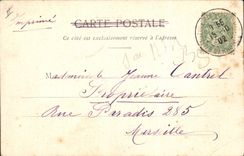 Imprimé
CARTE POSTALE
Ce côté est exclusivement réservé à l'adresse
Jeanne Cantrel
Propriétaire
Rue Paradis 285
Marseille